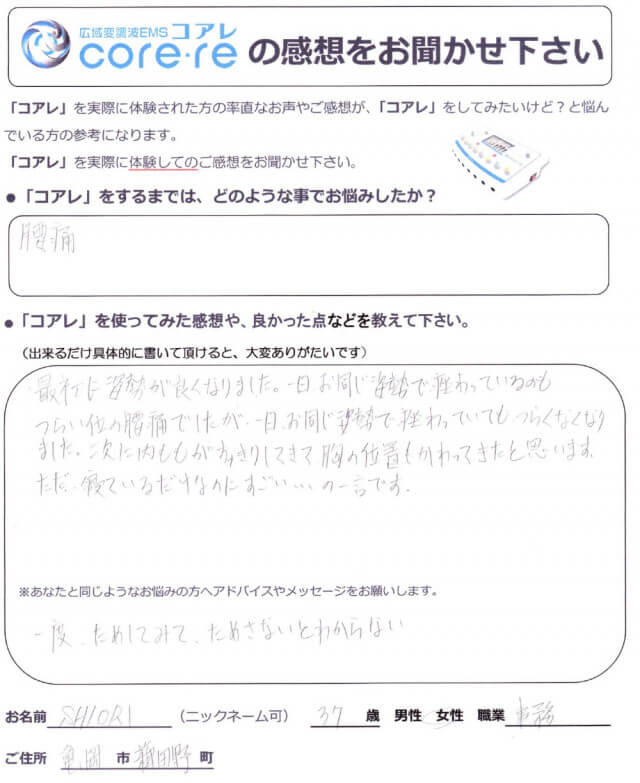 広域変調波EMS コアレ
core・re の感想をお聞かせ下さい
「コアレ」を実際に体験された方の率直なお声やご感想が、「コアレ」をしてみたいけど？と悩ん
でいる方の参考になります。
「コアレ」を実際に体験してのご感想をお聞かせ下さい。
●「コアレ」をするまでは、どのような事でお悩みしたか？
腰痛
●「コアレ」を使ってみた感想や、良かった点などを教えて下さい。
（出来るだけ具体的に書いて頂けると、大変ありがたいです）
最初に姿勢が良くなりました。一日お同じ姿勢で座わっているのも
つらい位の腰痛でしたが、一日お同じ姿勢で座わっていてもつらくなくなり
ました。次に内ももがすっきりしてきて胸の位置もかわってきたと思います。
ただ、寝ているだけなのにすごい…の一言です。
※あなたと同じようなお悩みの方へアドバイスやメッセージをお願いします。
一度、ためしてみて、ためさないとわからない
お名前 SHIORI （ニックネーム可） 37 歳 男性 女性 職業 事務
ご住所 亀岡 市 薭田野 町